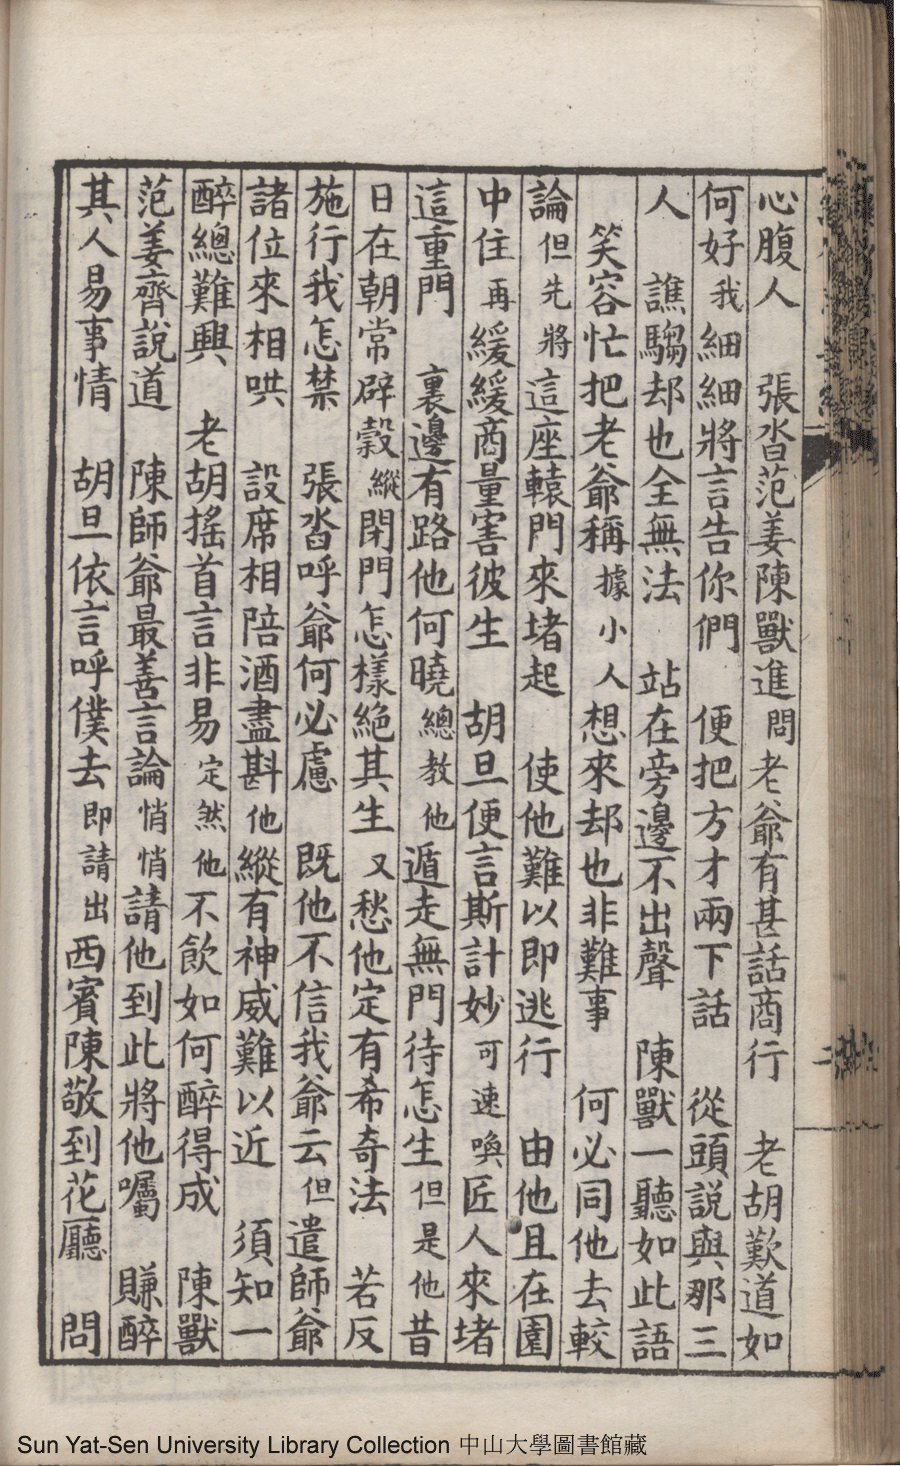 心腹人　張沓范姜陳獸進問老爺有甚話商行　老胡歎道如
何好我細細將言告你們　便把方才兩下話　從頭説與那三
人　譙騶却也全無法　站在旁邊不出聲　陳獸一聽如此語
笑容忙把老爺稱據小人想來却也非難事　何必同他去較
論但先將這座轅門來堵起　使他難以即逃行　由他且在園
中住再緩緩商量害彼生　胡旦便言斯計妙可速喚匠人來堵
這重門　裏邊有路他何曉總教他遁走無門待怎生但是他昔
日在朝常辟穀縱閉門怎樣絕其生又愁他定有希奇法　若反
施行我怎禁　張沓呼爺何必慮　既他不信我爺云但遣師爺
諸位來相哄　設席相陪酒盡斟他縱有神威難以近　須知一
醉總難興　老胡搖首言非易定然他不飲如何醉得成　陳獸
范姜齊說道　陳師爺最善言論悄悄請他到此將他囑　賺醉
其人易事情　胡旦依言呼僕去即請出西賓陳敬到花廳　問
Sun Yat-Sen University Library Collection 中山大學圖書館藏